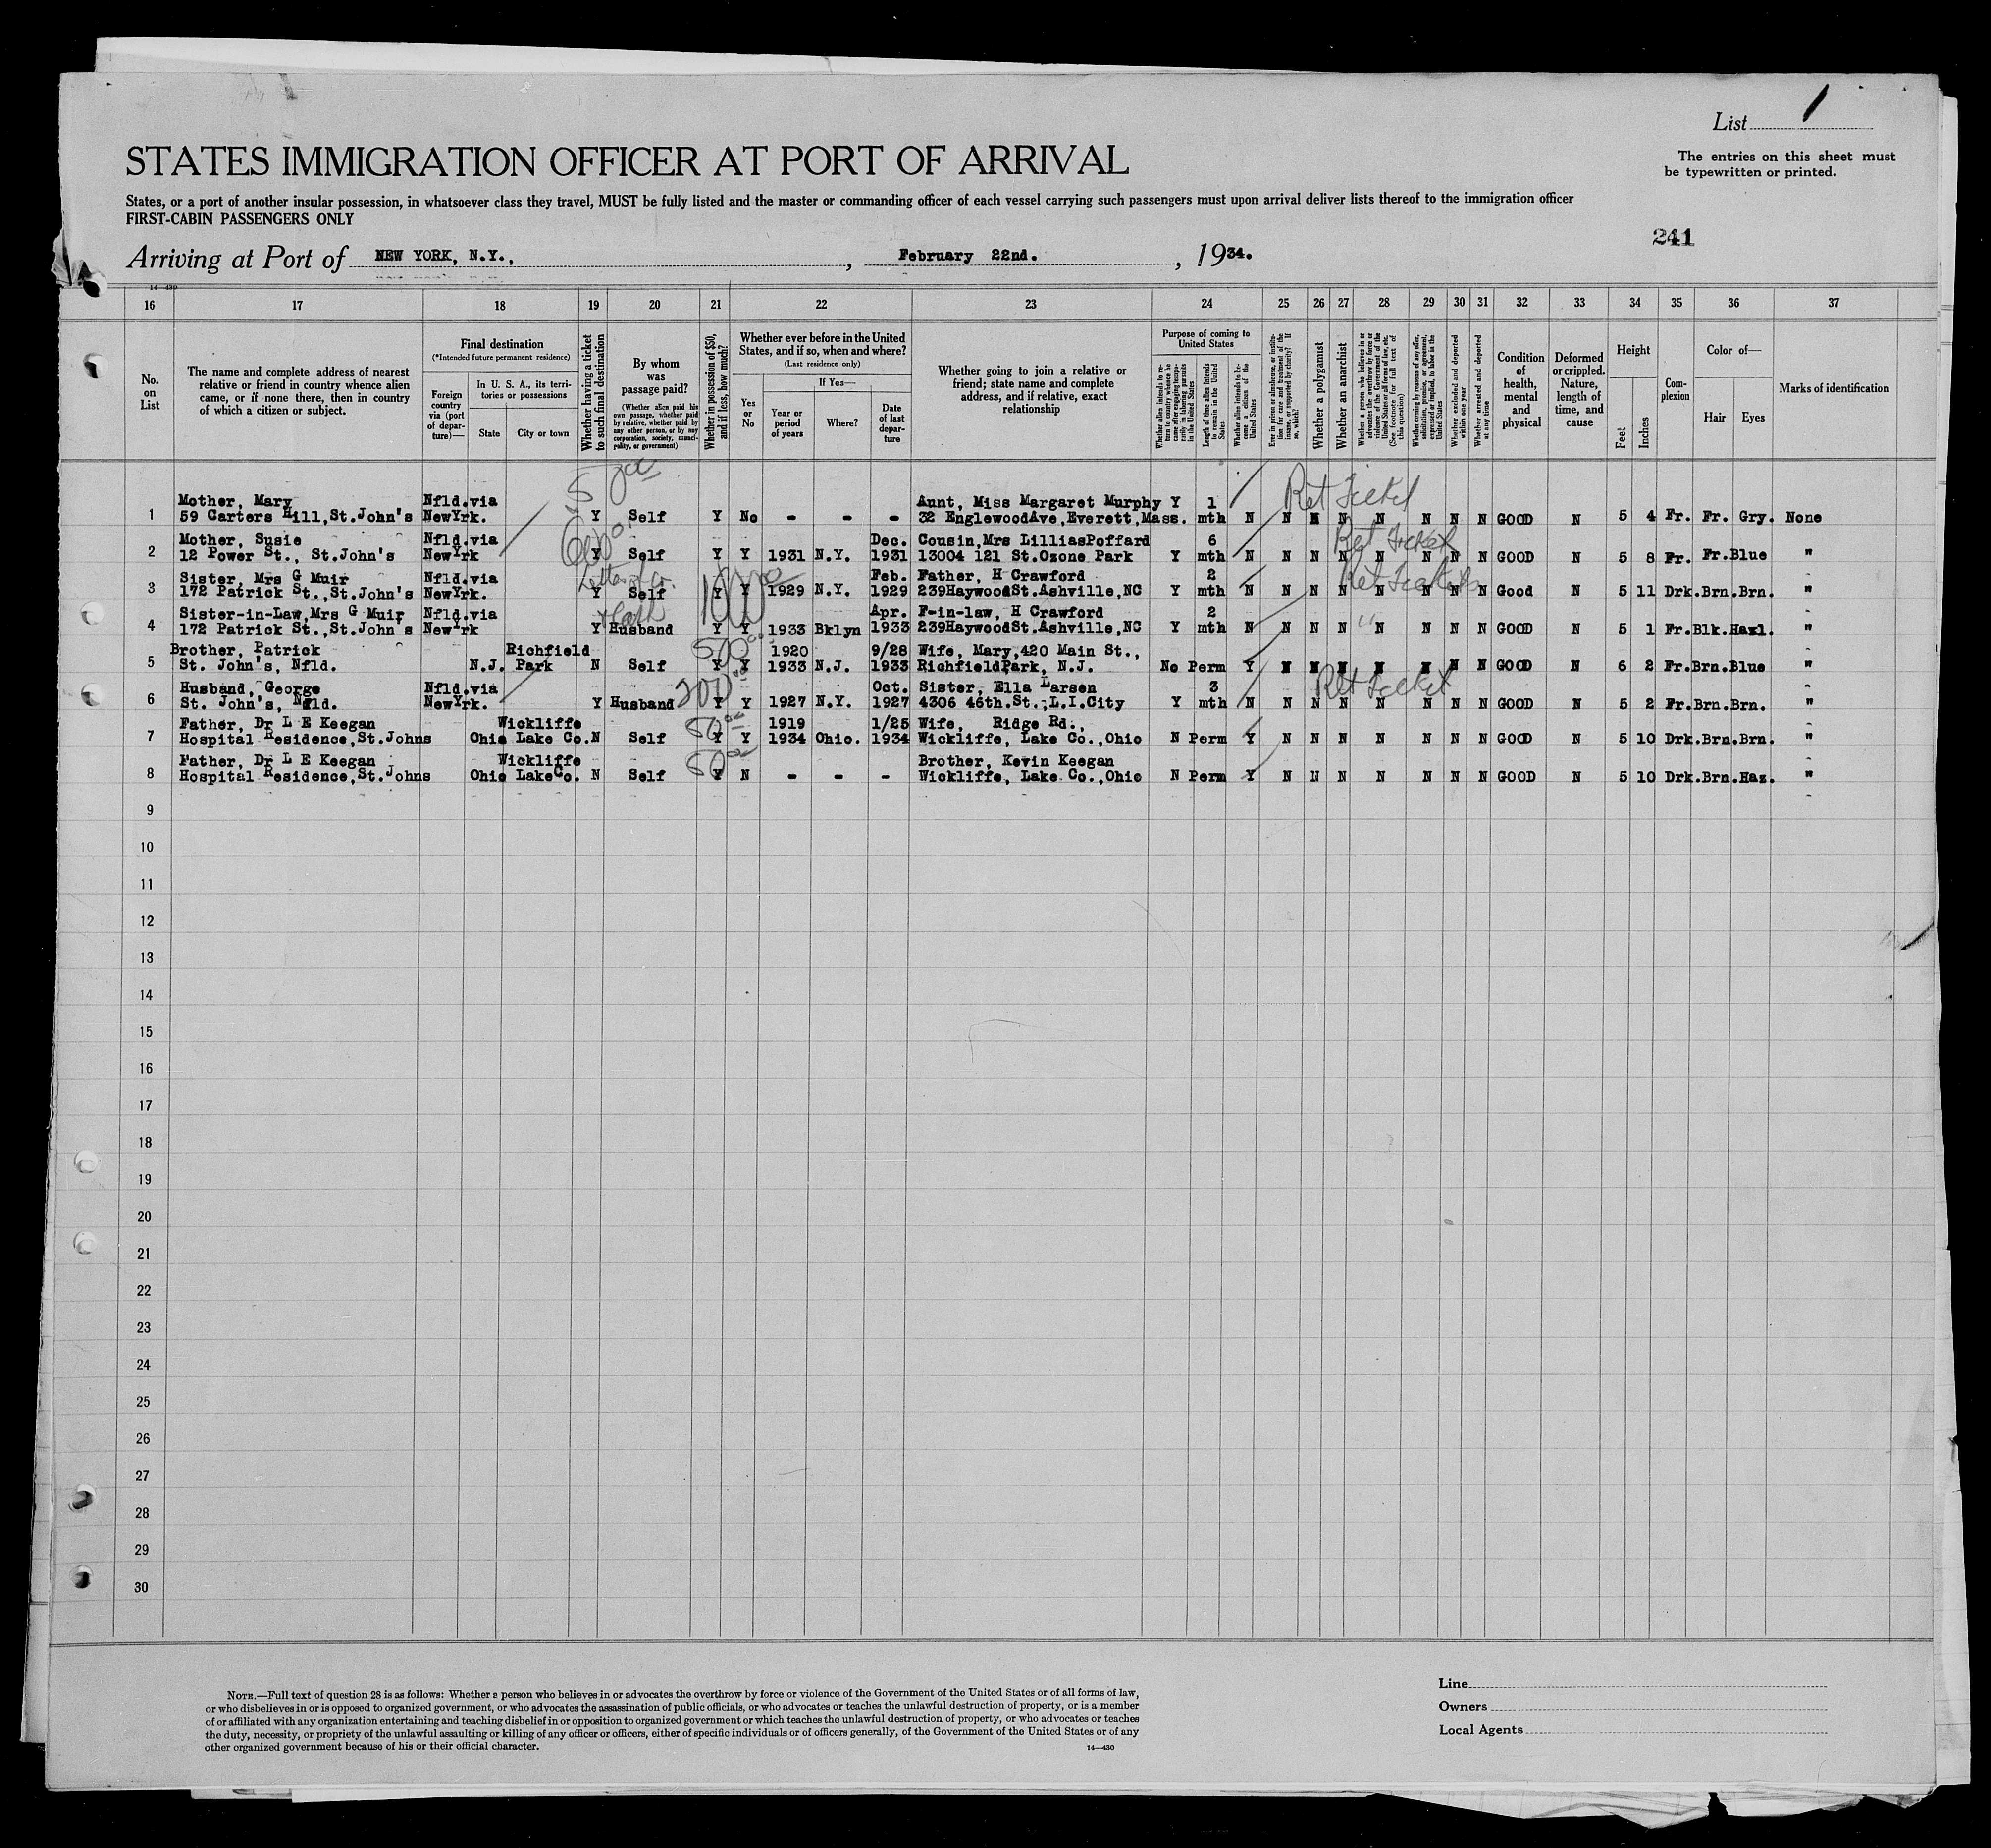 List 1
STATES IMMIGRATION OFFICER AT PORT OF ARRIVAL
The entries on this sheet must
be typewritten or printed.
States, or a port of another insular possession, in whatsoever class they travel, MUST be fully listed and the master or commanding officer of each vessel carrying such passengers must upon arrival deliver lists thereof to the immigration officer
FIRST-CABIN PASSENGERS ONLY
241
Arriving at Port of NEW YORK, N.Y., , February 22nd. , 1934.
14—430
16 17 18 19 20 21 22 23 24 25 26 27 28 29 30 31 32 33 34 35 36 37
No. on List
The name and complete address of nearest relative or friend in country whence alien came, or if none there, then in country of which a citizen or subject.
Final destination
(*Intended future permanent residence)
Foreign country via (port of departure)—
In U. S. A., its territories or possessions
State
City or town
Whether having a ticket to such final destination
By whom was passage paid?
(Whether alien paid his own passage, whether paid by relative, whether paid by any other person, or by any corporation, society, municipality, or government)
Whether in possession of $50, and if less, how much?
Whether ever before in the United States, and if so, when and where?
(Last residence only)
Yes or No
If Yes—
Year or period of years
Where?
Date of last departure
Whether going to join a relative or friend; state name and complete address, and if relative, exact relationship
Purpose of coming to United States
Length of time alien intends to remain in the United States
Whether alien intends to become a citizen of the United States
Whether a polygamist
Whether an anarchist
Whether excluded and deported within one year
Whether arrested and deported at any time
Condition of health, mental and physical
Deformed or crippled. Nature, length of time, and cause
Height
Feet
Inches
Complexion
Color of—
Hair
Eyes
Marks of identification
Mother, Mary Nfld.via Aunt, Miss Margaret Murphy Y 1 Ret Ticket
1 59 Carters Hill,St.John's NewYrk. Y Self Y No - - - 32 EnglewoodAve,Everett,Mass. mth N N N N N N N N GOOD N 5 4 Fr. Fr. Gry. None
Mother, Susie Nfld.via Dec. Cousin,Mrs LilliasPoffard 6 Ret Ticket
2 12 Power St., St.John's NewYrk Y Self Y Y 1931 N.Y. 1931 13004 121 St.Ozone Park Y mth N N N N N N N N GOOD N 5 8 Fr. Fr.Blue "
Sister, Mrs G Muir Nfld.via Feb. Father, H Crawford 2 Ret Tickets
3 172 Patrick St.,St.John's NewYrk. Y Self Y Y 1929 N.Y. 1929 239HaywoodSt.Ashville,NC Y mth N N N N N N N N Good N 5 11 Drk.Brn.Brn. "
Sister-in-Law,Mrs G Muir Nfld.via Apr. F-in-law, H Crawford 2 "
4 172 Patrick St.,St.John's NewYrk Y Husband Y Y 1933 Bklyn 1933 239HaywoodSt.Ashville,NC Y mth N N N N N N N N GOOD N 5 1 Fr.Blk.Hazl. "
Brother, Patrick Richfield 500 1920 9/28 Wife, Mary,420 Main St.,
5 St. John's, Nfld. N.J. Park N Self Y Y 1933 N.J. 1933 RichfieldPark, N.J. No Perm Y N N N N N N N GOOD N 6 2 Fr.Brn.Blue "
Husband, George Nfld.via 200 Oct. Sister, Ella Larsen 3 Ret Ticket
6 St. John's, Nfld. NewYrk. Y Husband Y Y 1927 N.Y. 1927 4306 46th.St.,L.I.City Y mth N N N N N N N N GOOD N 5 2 Fr.Brn.Brn. "
Father, Dr L E Keegan Wickliffe 50 1919 1/25 Wife, Ridge Rd.,
7 Hospital Residence,St.Johns Ohio Lake Co.N Self Y Y 1934 Ohio. 1934 Wickliffe, Lake Co.,Ohio N Perm Y N N N N N N N GOOD N 5 10 Drk.Brn.Brn. "
Father, Dr L E Keegan Wickliffe 50 Brother, Kevin Keegan
8 Hospital Residence,St.Johns Ohio LakeCo. N Self Y N - - - Wickliffe, Lake Co.,Ohio N Perm Y N N N N N N N GOOD N 5 10 Drk.Brn.Haz. "
9
10
11
12
13
14
15
16
17
18
19
20
21
22
23
24
25
26
27
28
29
30
NOTE.—Full text of question 28 is as follows: Whether a person who believes in or advocates the overthrow by force or violence of the Government of the United States or of all forms of law,
or who disbelieves in or is opposed to organized government, or who advocates the assassination of public officials, or who advocates or teaches the unlawful destruction of property, or is a member
of or affiliated with any organization entertaining and teaching disbelief in or opposition to organized government or which teaches the unlawful destruction of property, or who advocates or teaches
the duty, necessity, or propriety of the unlawful assaulting or killing of any officer or officers, either of specific individuals or of officers generally, of the Government of the United States or of any
other organized government because of his or their official character.
14—430
Line
Owners
Local Agents